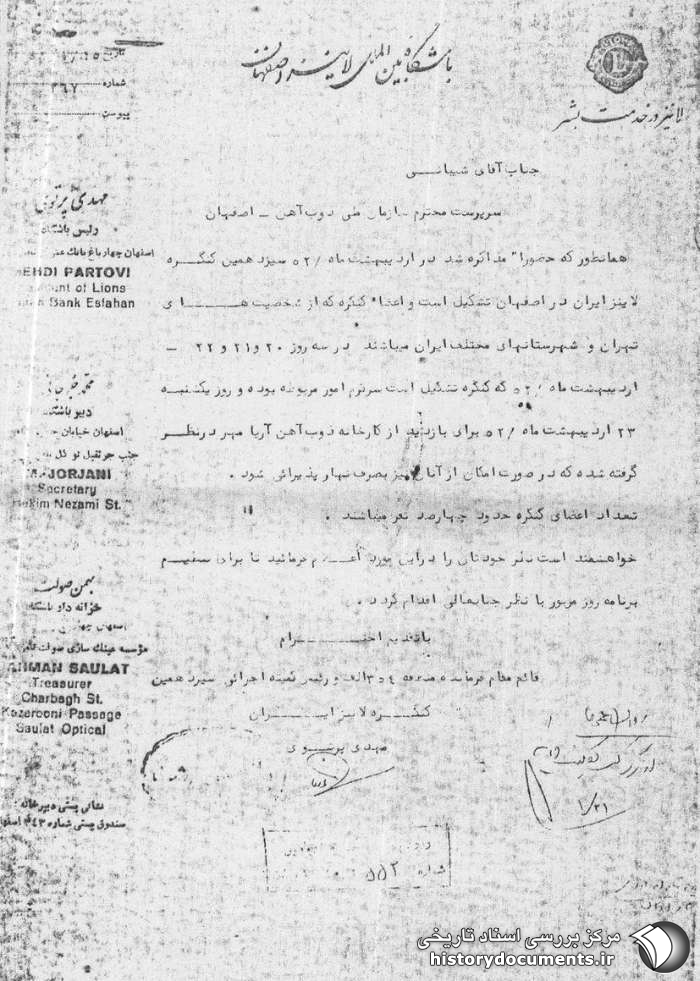 باشگاه بین المللی لاینز اصفهان
لاینز در خدمت بشر
تاریخ
شماره ۲۶۷
پیوست
جناب آقای شیبانی
سرپرست محترم سازمان ملی ذوب آهن ـ اصفهان
همانطور که حضورا" مذاکره شد در اردیبهشت ماه ۵۲/ سیزدهمین کنگره
لاینز ایران در اصفهان تشکیل است و اعضاء کنگره که از شخصیت هــای
تهران و شهرستانهای مختلف ایران میباشند در سه روز ۲۰ و ۲۱ و ۲۲ ـ
اردیبهشت ماه ۵۲/ که کنگره تشکیل است سرگرم امور مربوطه بوده و روز یکشنبه
۲۳ اردیبهشت ماه ۵۲/ برای بازدید از کارخانه ذوب آهن آریا مهر در نظر
گرفته شده که در صورت امکان از آنان نیز بصرف نهار پذیرائی شود .
تعداد اعضای کنگره حدود چهارصد نفر میباشند .
خواهشمند است نظر خودتان را در این مورد اعلام فرمائید تا برای تنظیم
برنامه روز مزبور با نظر جنابعالی اقدام گردد .
با تقدیم احتـــرام
قائم مقام فرمانده منطقه ۳۵۴ الف و رئیس کمیته اجرائی سیزدهمین
کنگــره لاینز ایــران
مهدی پرتوی
مهدی پرتوی
رئیس باشگاه
اصفهان چهارباغ بانک
EHDI PARTOVI
of Lions
Bank Esfahan
دبیر باشگاه
اصفهان خیابان
جنب جرثقیل
JORJANI
Secretary
Nezami St.
بهمن صولت
خزانه دار باشگاه
مؤسسه عینک سازی صولت
AHMAN SAULAT
Treasurer
Charbagh St.
Kazerooni Passage
Saulat Optical
نشانی پستی دبیرخانه
صندوق پستی شماره ۴۳
۱/۲۱
شماره ۵۵۲
مرکز بررسی اسناد تاریخی
historydocuments.ir